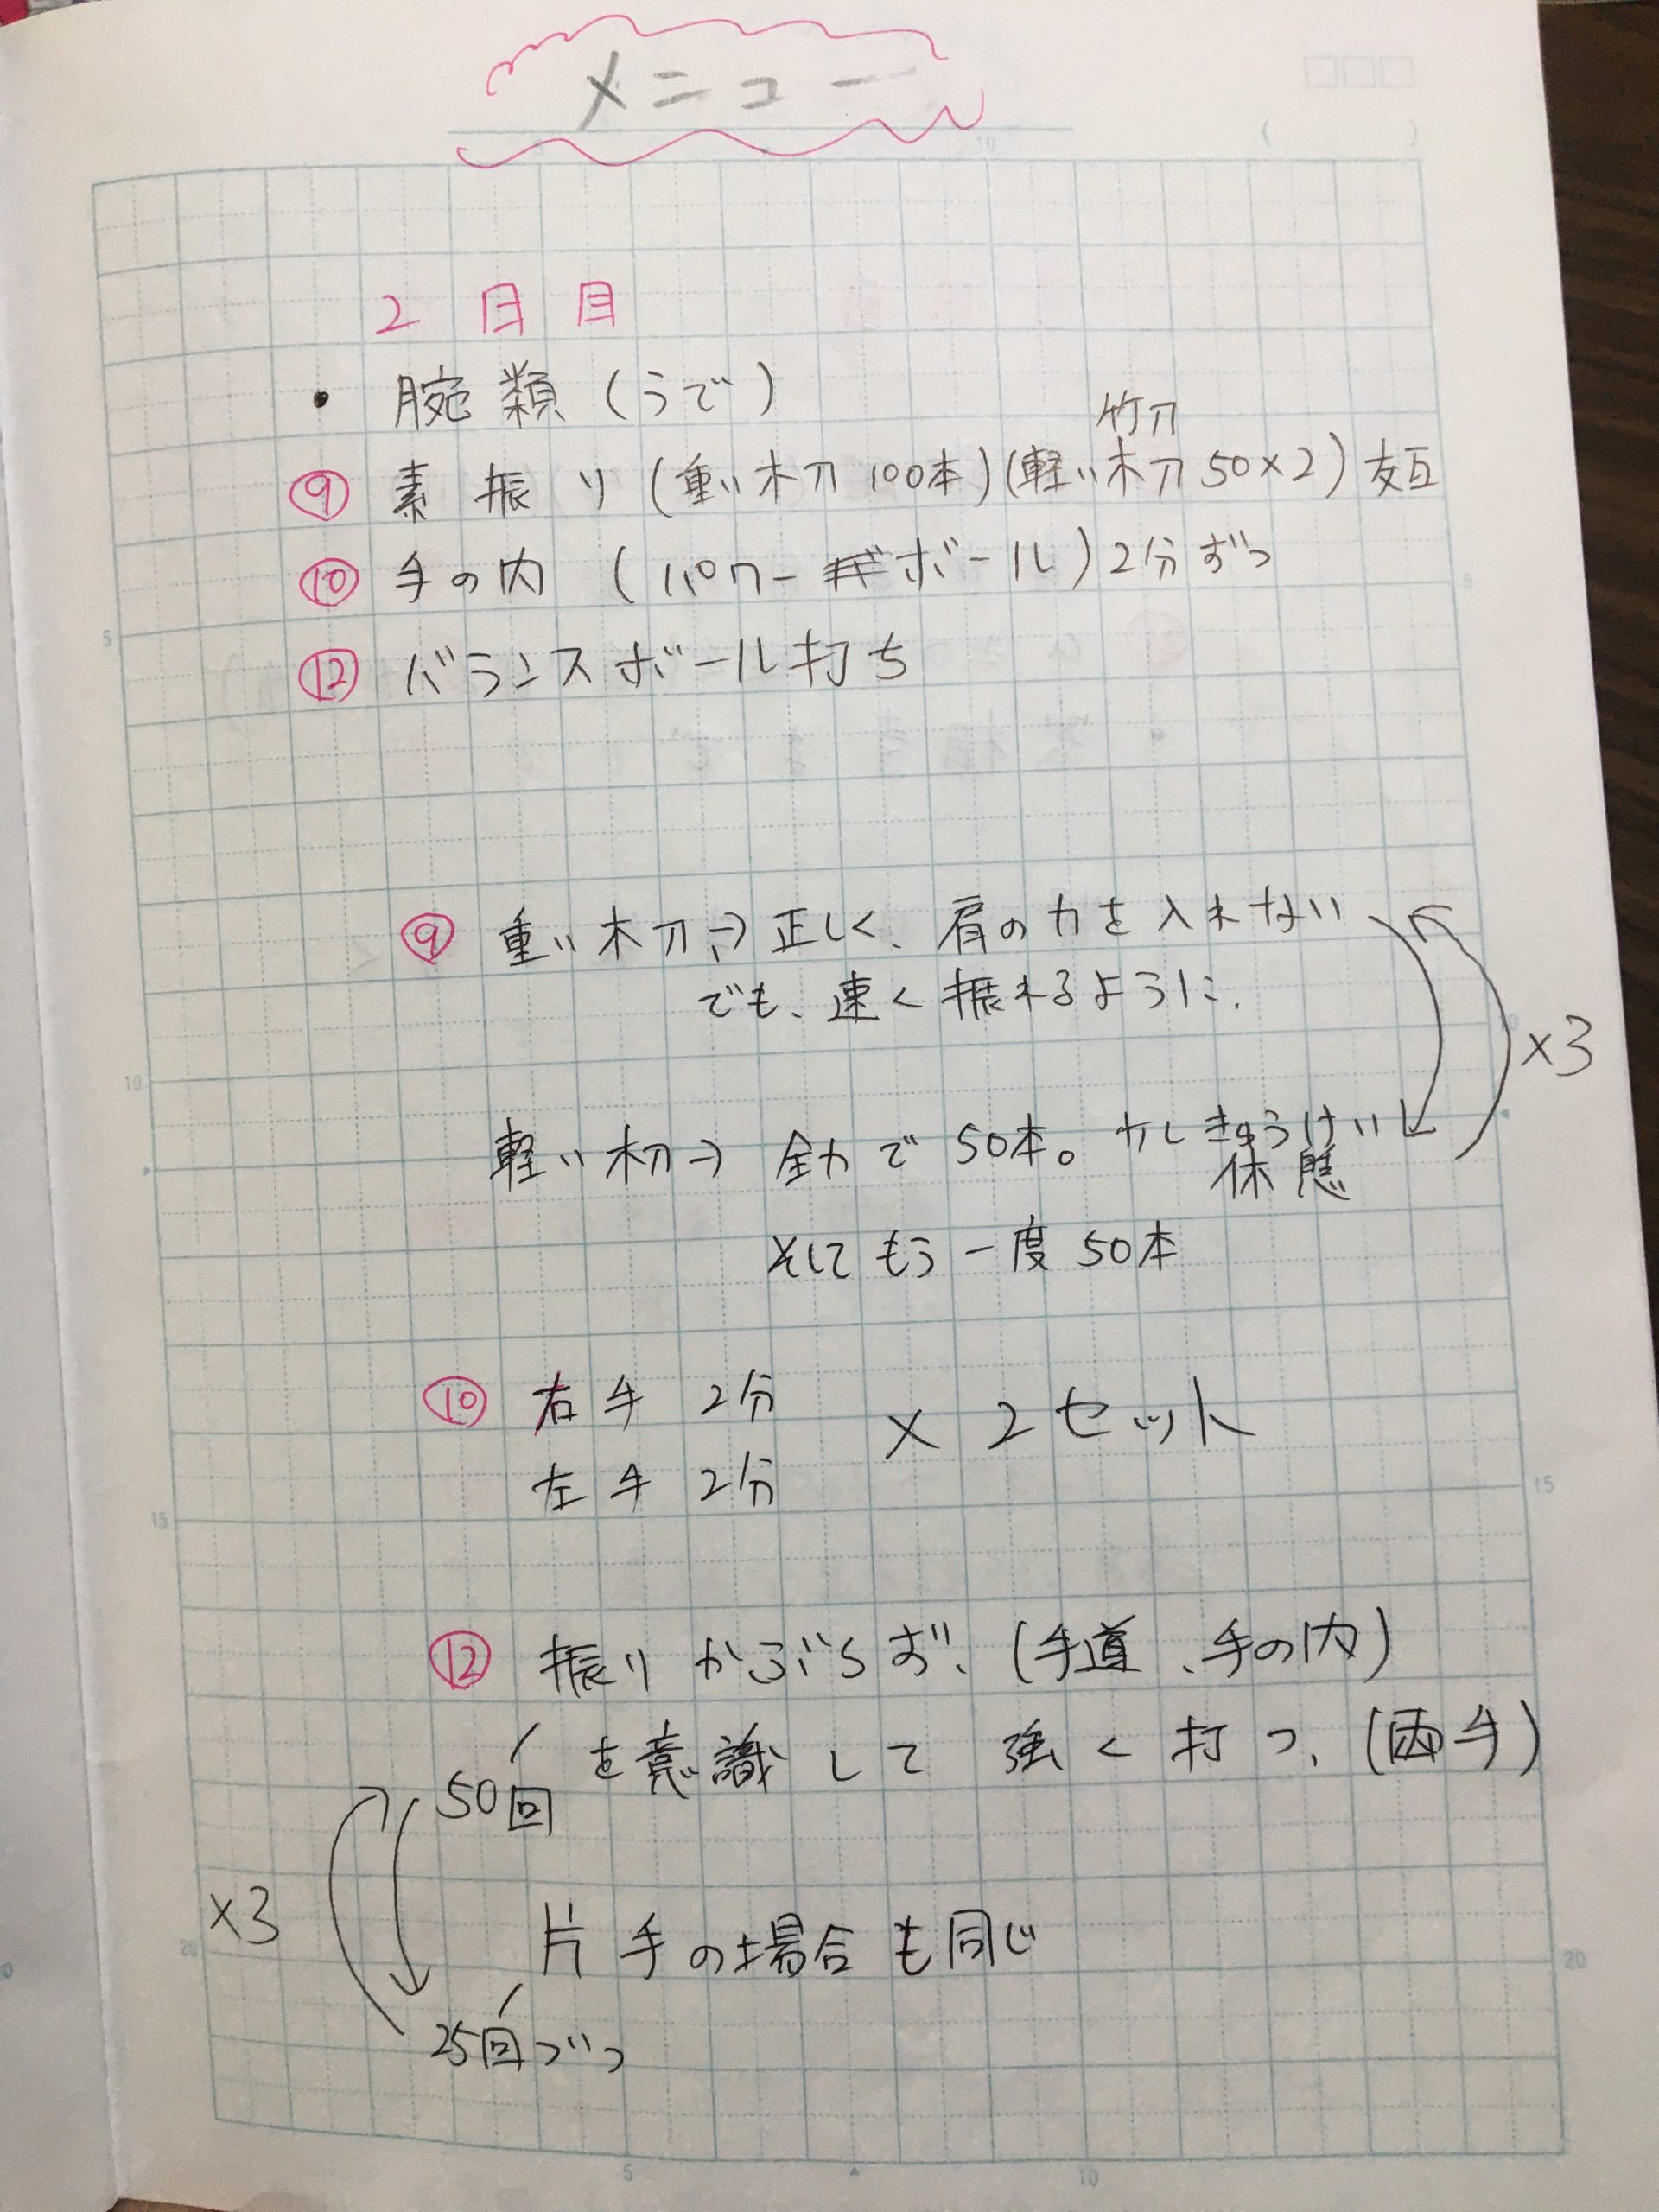 メニュー
2日目
・腕類(うで)
竹刀
⑨素振り(重い木刀100本)(軽い木刀50×2)交互
⑩手の内(パワーボール)2分ずつ
⑫バランスボール打ち
⑨重い木刀→正しく、肩の力を入れない
でも、速く振れるように.
×3
軽い木刀→全力で50本。少しきゅうけい
休憩
そしてもう一度50本
⑩右手 2分
×2セット
左手 2分
⑫振りかぶらず、(手道、手の内)
を意識して強く打つ、(両手)
50回
×3
片手の場合も同じ
25回づつ
5
10
15
20
5
10
10
5
15
20